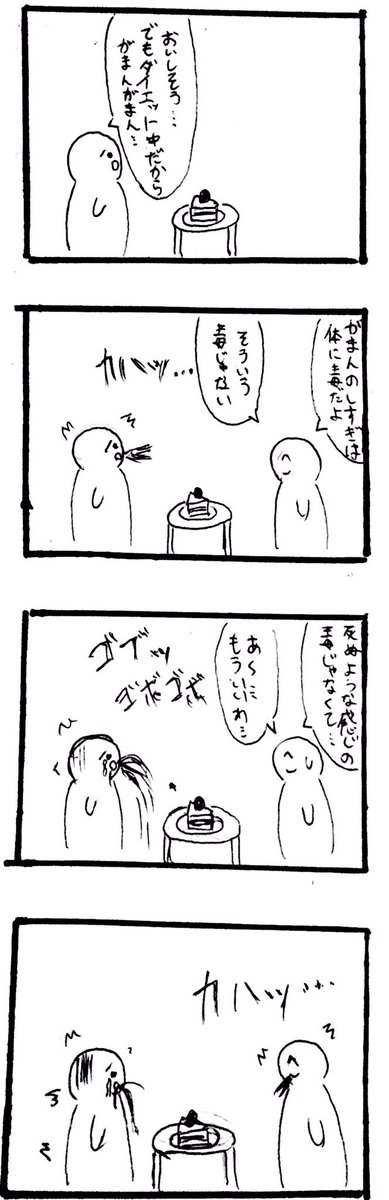 おいしそう…
でもダイエット中だから
がまんがまん…
がまんのしすぎは
体に毒だよ
カハッ…
そういう
毒じゃない
死ぬような感じの
毒じゃなくて…
あ〜…
もういいわ…
ゴブッ
ゴボゴボ
カハッ…